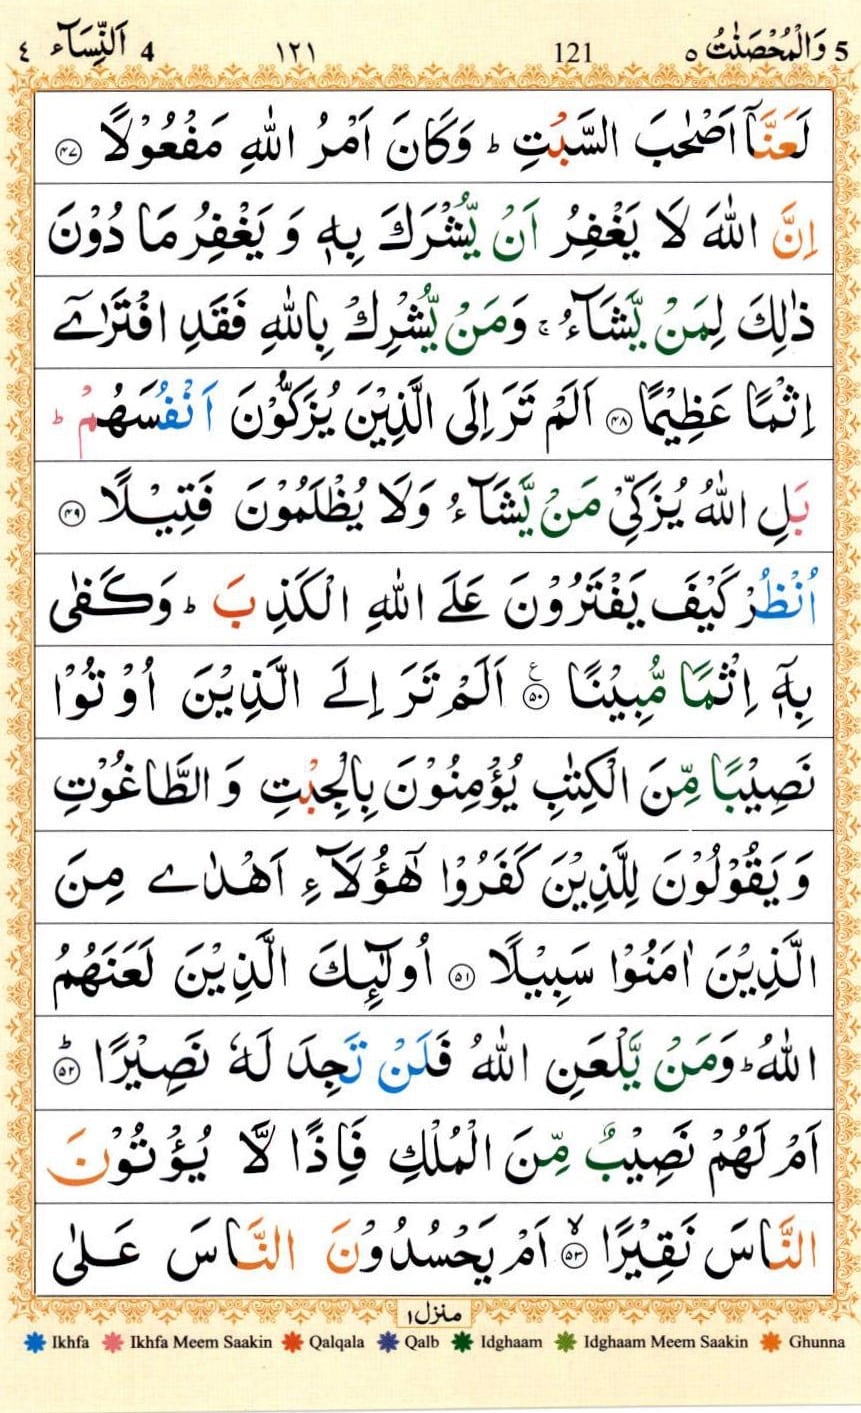 5 وَالْمُحْصَنٰتُ ٥ 121 ١٢١ 4 اَلنِّسَآء ٤
لَعَنَّاۤ اَصْحٰبَ السَّبْتِ ؕ وَكَانَ اَمْرُ اللّٰهِ مَفْعُوْلًا ﴿۴۷﴾
اِنَّ اللّٰهَ لَا يَغْفِرُ اَنْ يُّشْرَكَ بِهٖ وَ يَغْفِرُ مَا دُوْنَ
ذٰلِكَ لِمَنْ يَّشَآءُ ۚ وَمَنْ يُّشْرِكْ بِاللّٰهِ فَقَدِ افْتَرٰۤى
اِثْمًا عَظِيْمًا ﴿۴۸﴾ اَلَمْ تَرَ اِلَى الَّذِيْنَ يُزَكُّوْنَ اَنْفُسَهُمْ ؕ
بَلِ اللّٰهُ يُزَكِّىْ مَنْ يَّشَآءُ وَلَا يُظْلَمُوْنَ فَتِيْلًا ﴿۴۹﴾
اُنْظُرْ كَيْفَ يَفْتَرُوْنَ عَلَى اللّٰهِ الْكَذِبَ ؕ وَكَفٰى
بِهٖۤ اِثْمًا مُّبِيْنًا ﴿۵۰﴾ ع اَلَمْ تَرَ اِلَى الَّذِيْنَ اُوْتُوْا
نَصِيْبًا مِّنَ الْكِتٰبِ يُؤْمِنُوْنَ بِالْجِبْتِ وَ الطَّاغُوْتِ
وَ يَقُوْلُوْنَ لِلَّذِيْنَ كَفَرُوْا هٰٓؤُلَآءِ اَهْدٰى مِنَ
الَّذِيْنَ اٰمَنُوْا سَبِيْلًا ﴿۵۱﴾ اُولٰٓئِكَ الَّذِيْنَ لَعَنَهُمُ
اللّٰهُ ؕ وَمَنْ يَّلْعَنِ اللّٰهُ فَلَنْ تَجِدَ لَهٗ نَصِيْرًا ؕ﴿۵۲﴾
اَمْ لَهُمْ نَصِيْبٌ مِّنَ الْمُلْكِ فَاِذًا لَّا يُؤْتُوْنَ
النَّاسَ نَقِيْرًا ۙ﴿۵۳﴾ اَمْ يَحْسُدُوْنَ النَّاسَ عَلٰى
منزل ۱
Ikhfa Ikhfa Meem Saakin Qalqala Qalb Idghaam Idghaam Meem Saakin Ghunna